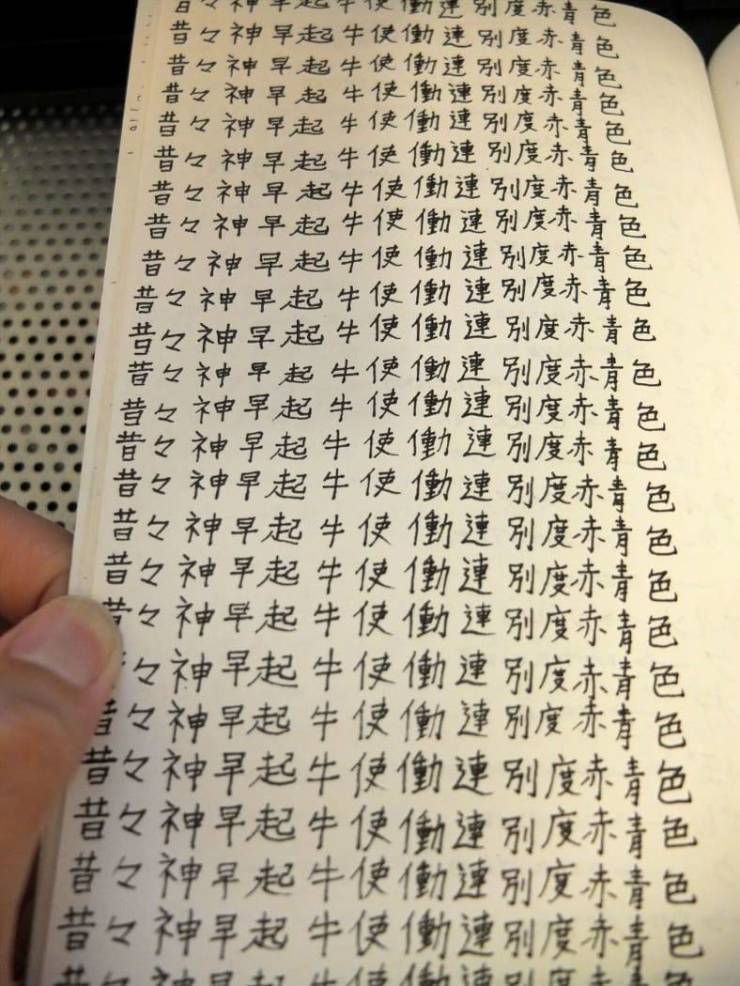 使働連別度赤青色
昔々神早起牛使働連別度赤青色
昔々神早起牛使働連別度赤青色
昔々神早起牛使働連別度赤青色
昔々神早起牛使働連別度赤青色
昔々神早起牛使働連別度赤青色
昔々神早起牛使働連別度赤青色
昔々神早起牛使働連別度赤青色
昔々神早起牛使働連別度赤青色
昔々神早起牛使働連別度赤青色
昔々神早起牛使働連別度赤青色
昔々神早起牛使働連別度赤青色
昔々神早起牛使働連別度赤青色
昔々神早起牛使働連別度赤青色
昔々神早起牛使働連別度赤青色
昔々神早起牛使働連別度赤青色
昔々神早起牛使働連別度赤青色
昔々神早起牛使働連別度赤青色
々神早起牛使働連別度赤青色
昔々神早起牛使働連別度赤青色
昔々神早起牛使働連別度赤青色
昔々神早起牛使働連別度赤青色
昔々神早起牛使働連別度赤青色
昔々神早起牛使働連別度赤青色